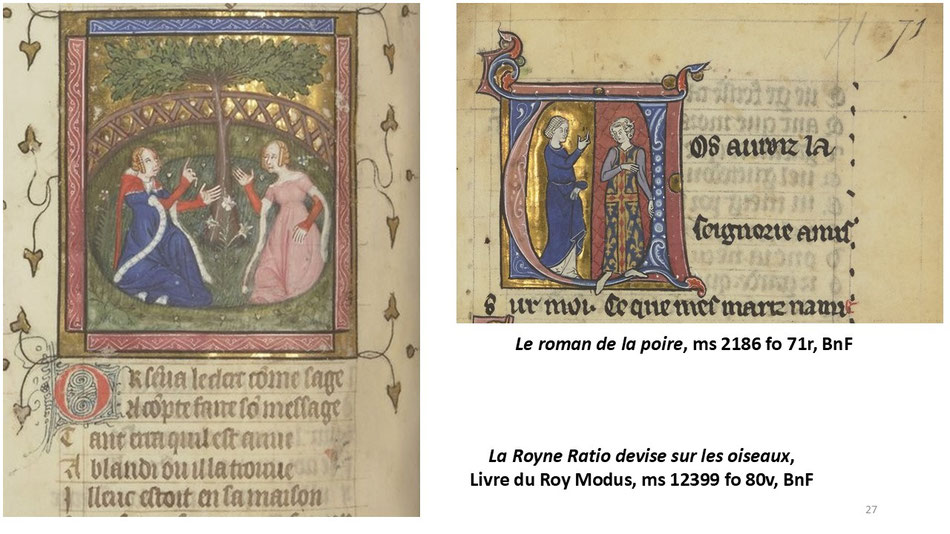 Or sen va le clerc cõme sage
A cõpte faire sõ message
Tant erra quil est
A blandi ou il la trouue
Illeuc estoit en sa maison
71 71
Vos auroiz la
seignorie amis
Sur moi. Ce que mes mariz na mie
Le roman de la poire, ms 2186 fo 71r, BnF
La Royne Ratio devise sur les oiseaux,
Livre du Roy Modus, ms 12399 fo 80v, BnF
27